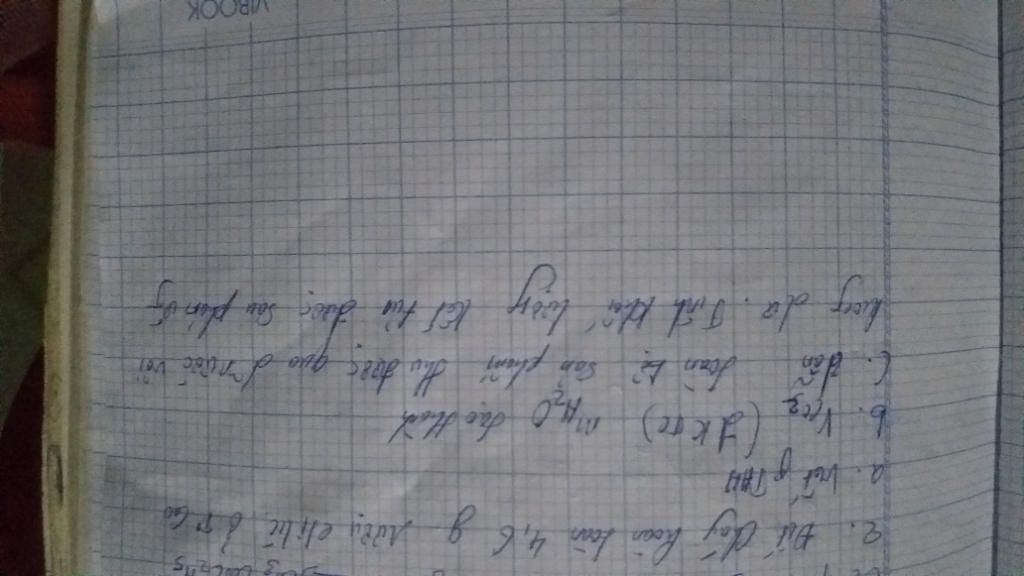 2. Đốt cháy hoàn toàn 4,6 g rượu etilic ở
a. Viết PTHH
b. VCO2 (đktc) mH2O tạo thành
c. dẫn toàn bộ sản phẩm thu được qua d nước vôi
trong dư. Tính khối lượng kết tủa được sau phản ứng
VIBOOK